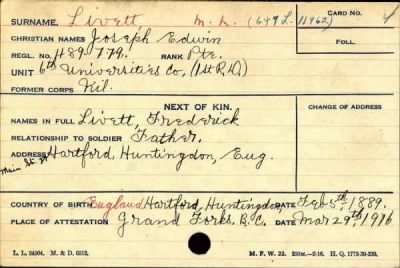 SURNAME. Livett, M. M. (649 L. 11962) CARD NO. 4
CHRISTIAN NAMES Joseph Edwin FOLL.
REGL. No. 489779. RANK Pte.
UNIT 6th Universities Co, (1st R.D.)
FORMER CORPS Nil.
NEXT OF KIN. CHANGE OF ADDRESS
NAMES IN FULL Livett, Frederick
RELATIONSHIP TO SOLDIER Father.
ADDRESS Hartford, Huntingdon, Eng.
Main St.
COUNTRY OF BIRTH England Hartford, Huntingdon, DATE Feb 5th, 1889.
PLACE OF ATTESTATION Grand Forks, B.C. DATE Mar 29th, 1916
L. L. 94904. M. & D. 6512. M. F. W. 22. 2-16. H. Q. 1772-39-339.